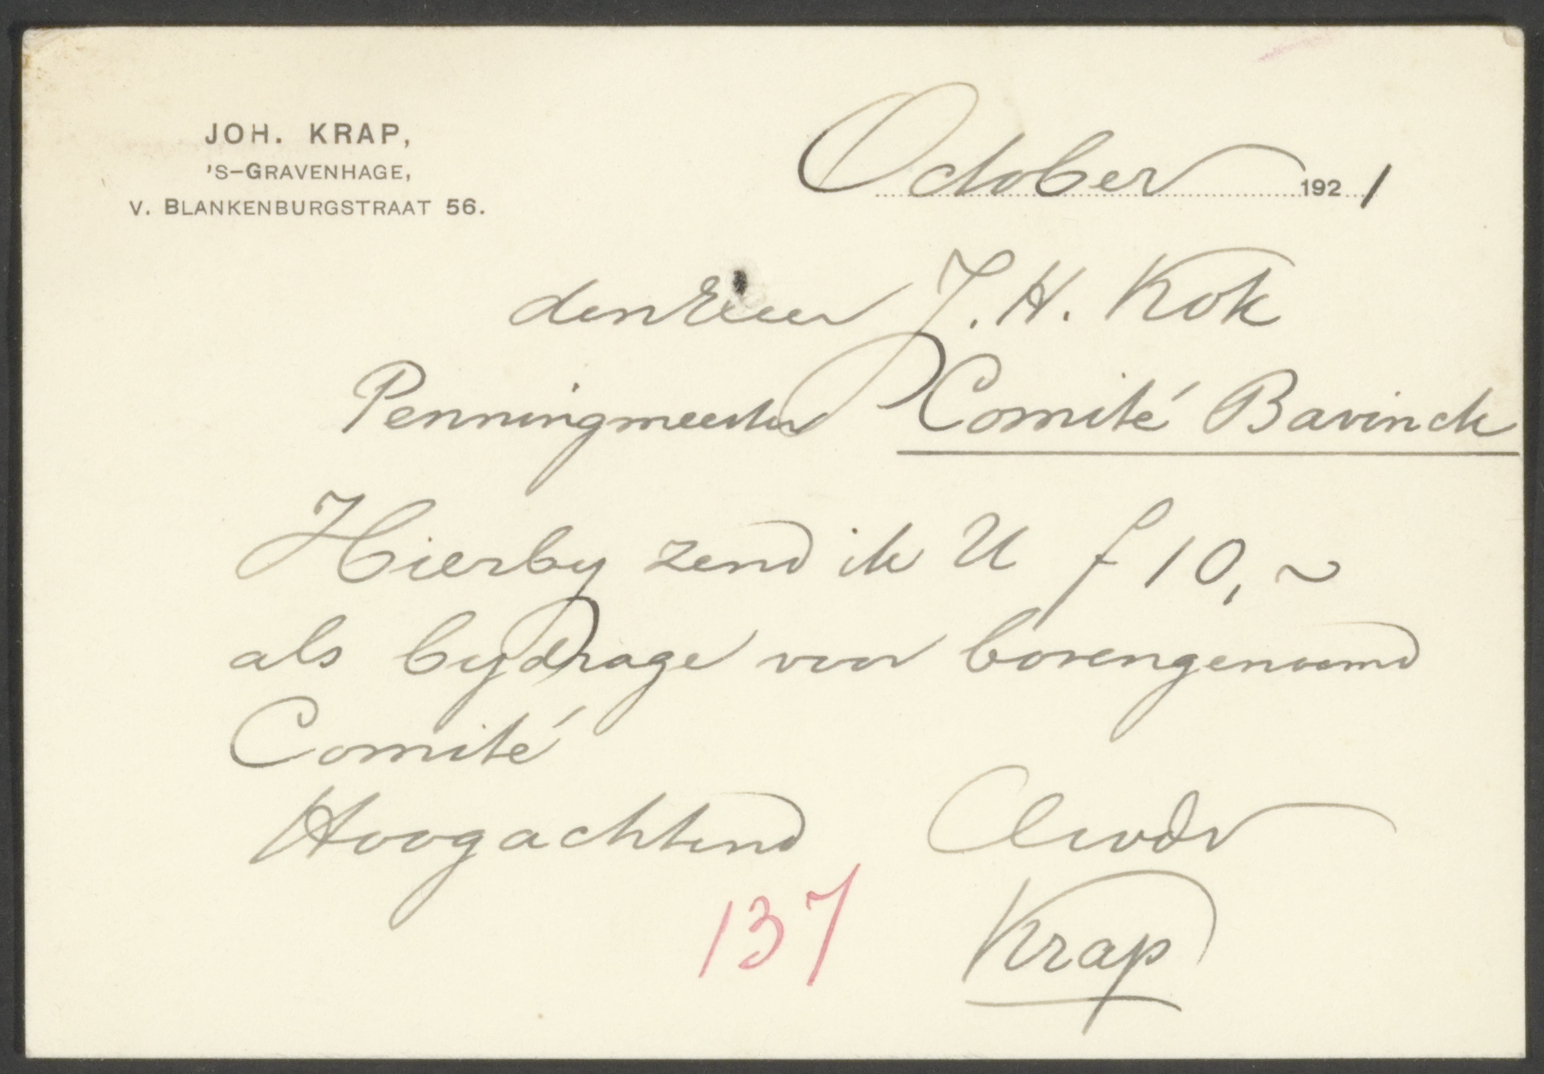 JOH. KRAP,
'S-GRAVENHAGE,
V. BLANKENBURGSTRAAT 56.
October 1921
den Heer J. H. Kok
Penningmeester Comité Bavinck
Hierby zend ik U f 10,~
als bijdrage voor bovengenoemd
Comité
Hoogachtend Uwdv
Krap
137